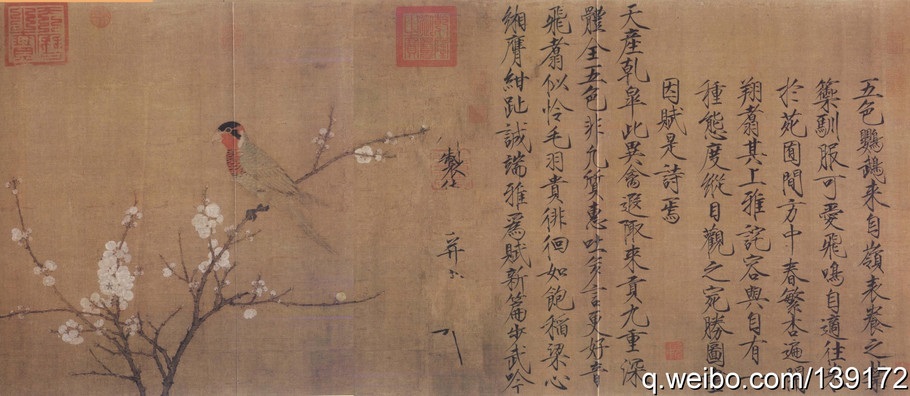 五色鸚鵡來自嶺表養之禁
籞馴服可愛飛鳴自適往來
於苑囿間方中春繁杏遍開
翔翥其上雅詫容與自有一
種態度縱目觀之宛勝圖畫
因賦是詩焉
天産乾皐此異禽遐陬來貢九重深
體全五色非凡質惠吐多言更好音
飛翥似憐毛羽貴徘徊如飽稻粱心
緗膺紺趾誠端雅爲賦新篇步武吟
製
并書
q.weibo.com/139172